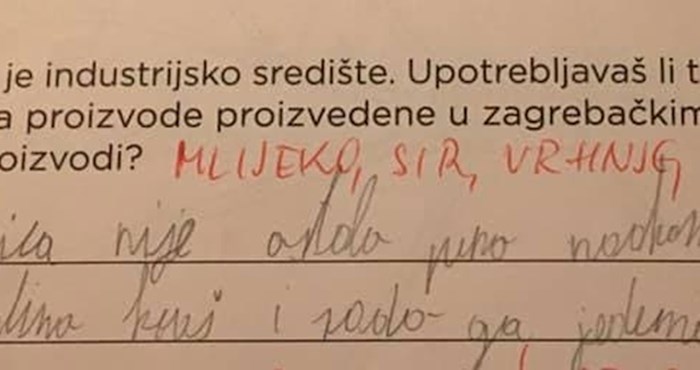 je industrijsko središte. Upotrebljavaš li t
a proizvode proizvedene u zagrebačkim
oizvodi? MLIJEKO, SIR, VRHNJE,
nije puno
kruš i rado ga jedemo